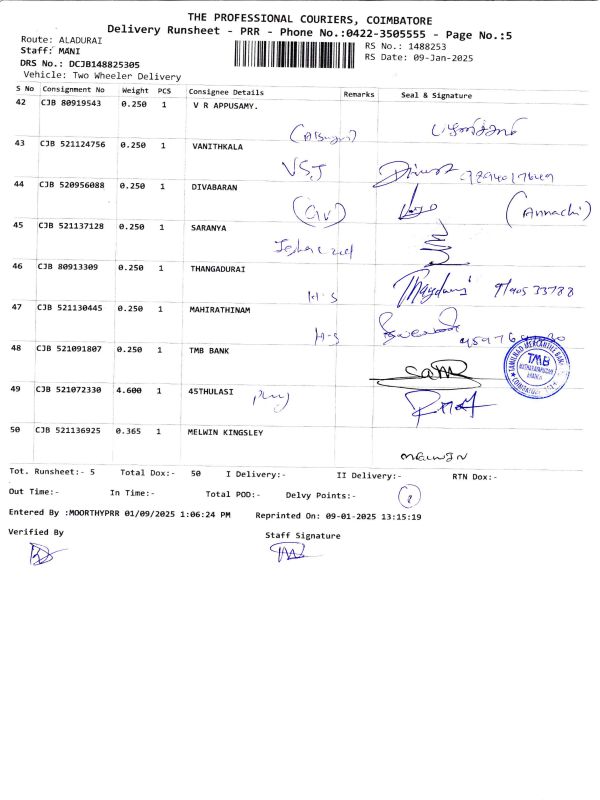 THE PROFESSIONAL COURIERS, COIMBATORE
Delivery Runsheet - PRR - Phone No.:0422-3505555 - Page No.:5
Route: ALADURAI
RS No.: 1488253
Staff: MANI
RS Date: 09-Jan-2025
DRS No.: DCJB148825305
Vehicle: Two Wheeler Delivery
S No Consignment No Weight PCS Consignee Details Remarks Seal & Signature
42 CJB 80919543 0.250 1 V R APPUSAMY.
43 CJB 521124756 0.250 1 VANITHKALA
VSJ
44 CJB 520956088 0.250 1 DIVABARAN
(Annachi)
45 CJB 521137128 0.250 1 SARANYA
46 CJB 80913309 0.250 1 THANGADURAI
H.S
47 CJB 521130445 0.250 1 MAHIRATHINAM
H-S
48 CJB 521091807 0.250 1 TMB BANK
TAMILNAD MERCANTILE BANK
TMB
BRANCH
49 CJB 521072330 4.600 1 45THULASI
50 CJB 521136925 0.365 1 MELWIN KINGSLEY
Tot. Runsheet:- 5 Total Dox:- 50 I Delivery:- II Delivery:- RTN Dox:-
Out Time:- In Time:- Total POD:- Delvy Points:- 8
Entered By :MOORTHYPRR 01/09/2025 1:06:24 PM Reprinted On: 09-01-2025 13:15:19
Verified By Staff Signature